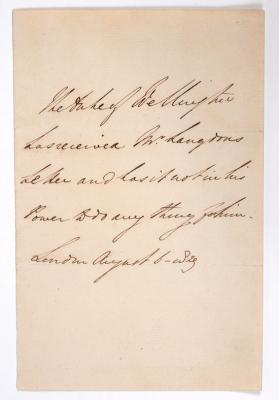 The Duke of Wellington
has received Mr. Langdons
Letter and has it not in his
Power to do any thing for him.
London August 6